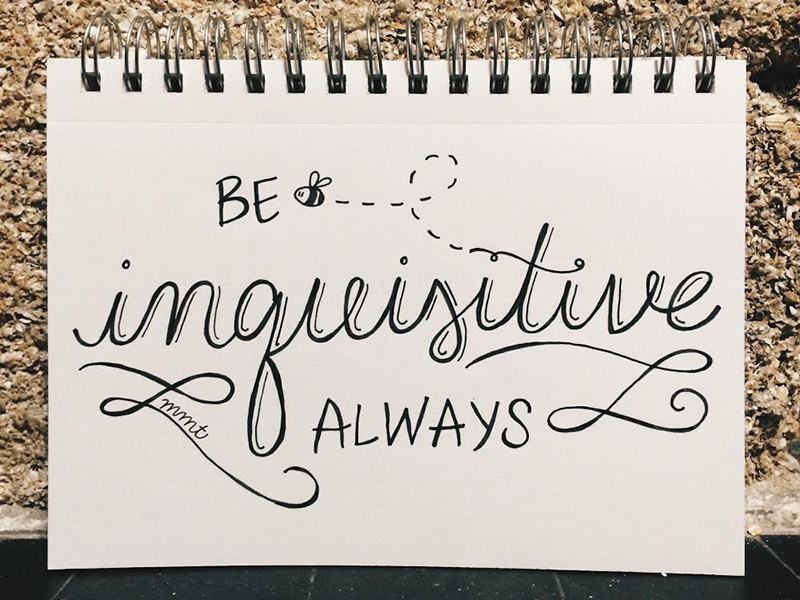 BE
inquisitive
mmt
ALWAYS